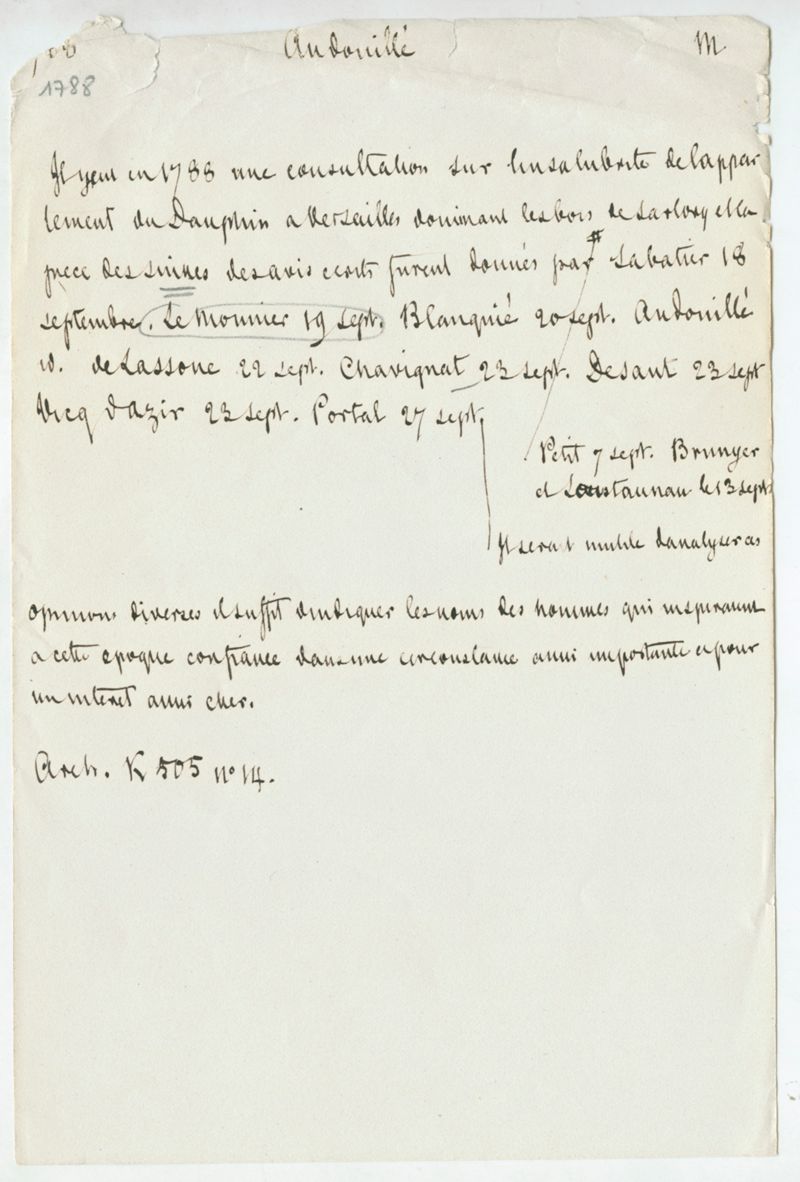 Andouillé M
1788
Il y eut en 1788 une consultation sur l'insalubrité de lappar
tement du Dauphin a Versailles dominant les bois de Sartory et la
piece des suisses des avis ecrits furent donnés par # Sabatier 18
septembre. Le Monnier 19 sept. Blanquié 20 sept. Andouillé
id. de Lassone 22 sept. Chavignat 23 sept. Desaut 23 sept
Vicq d'azir 23 sept. Portal 27 sept.
Petit 7 sept. Brunyer
et Loustaunau le 13 sept.
Il serait inutile danalyser ces
opinions diverses il suffit dindiquer les noms des hommes qui inspiraient
a cette epoque confiance dans une circonstance aussi importante et pour
un interet aussi cher.
Arch. K 505 n° 14.